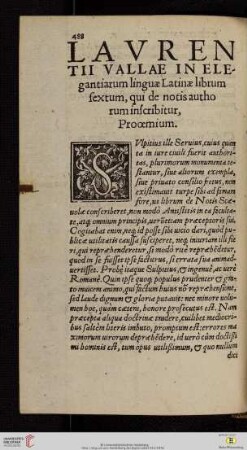 488
LAVREN
TII VALLAE IN ELE-
gantiarum linguæ Latinæ librum
sextum, qui de notis autho
rum inscribitur,
Proœmium.
SVlpitius ille Seruius, cuius quan
ta in iure ciuili fuerit authori
tas, plurimorum monumenta te-
stantur, siue aliorum exemplo,
siue priuato consilio fecit, non
existimauit turpe sibi ad famam
fore, ut librum de Notis Scæ-
uolæ conscriberet, non modo
te, atq; omnium principis, uerùm etiam præceptoris sui.
Cogitabat enim, neq; id posse sibi uitio dari, quod pu-
blicæ utilitatis causa susciperet, neq; iniuriam illi fie-
ri, qui reprehenderetur, si modò rectè reprehendisset,
quod in se fuisset ipse facturus, si errata sua animad-
uertisset. Probè itaque Sulpitius, & ingenuè, ac uerè
Romanè. Quin ipse quoq; populus prudenter & gra-
to muneri animo, qui factum huius non reprehensione,
sed laude dignum & gloria putauit: nec minore uolu-
men hoc, quàm cætera, honore prosecutus est. Nam
præcepta aliqua doctrinæ tradere, cuilibet mediocri-
bus saltem literis imbuto, promptum est: errores ma
ximorum uirorum depræhēdere, id uerò cùm doctissi
mi hominis est, tum opus utilissimum, & quo nullum
dici